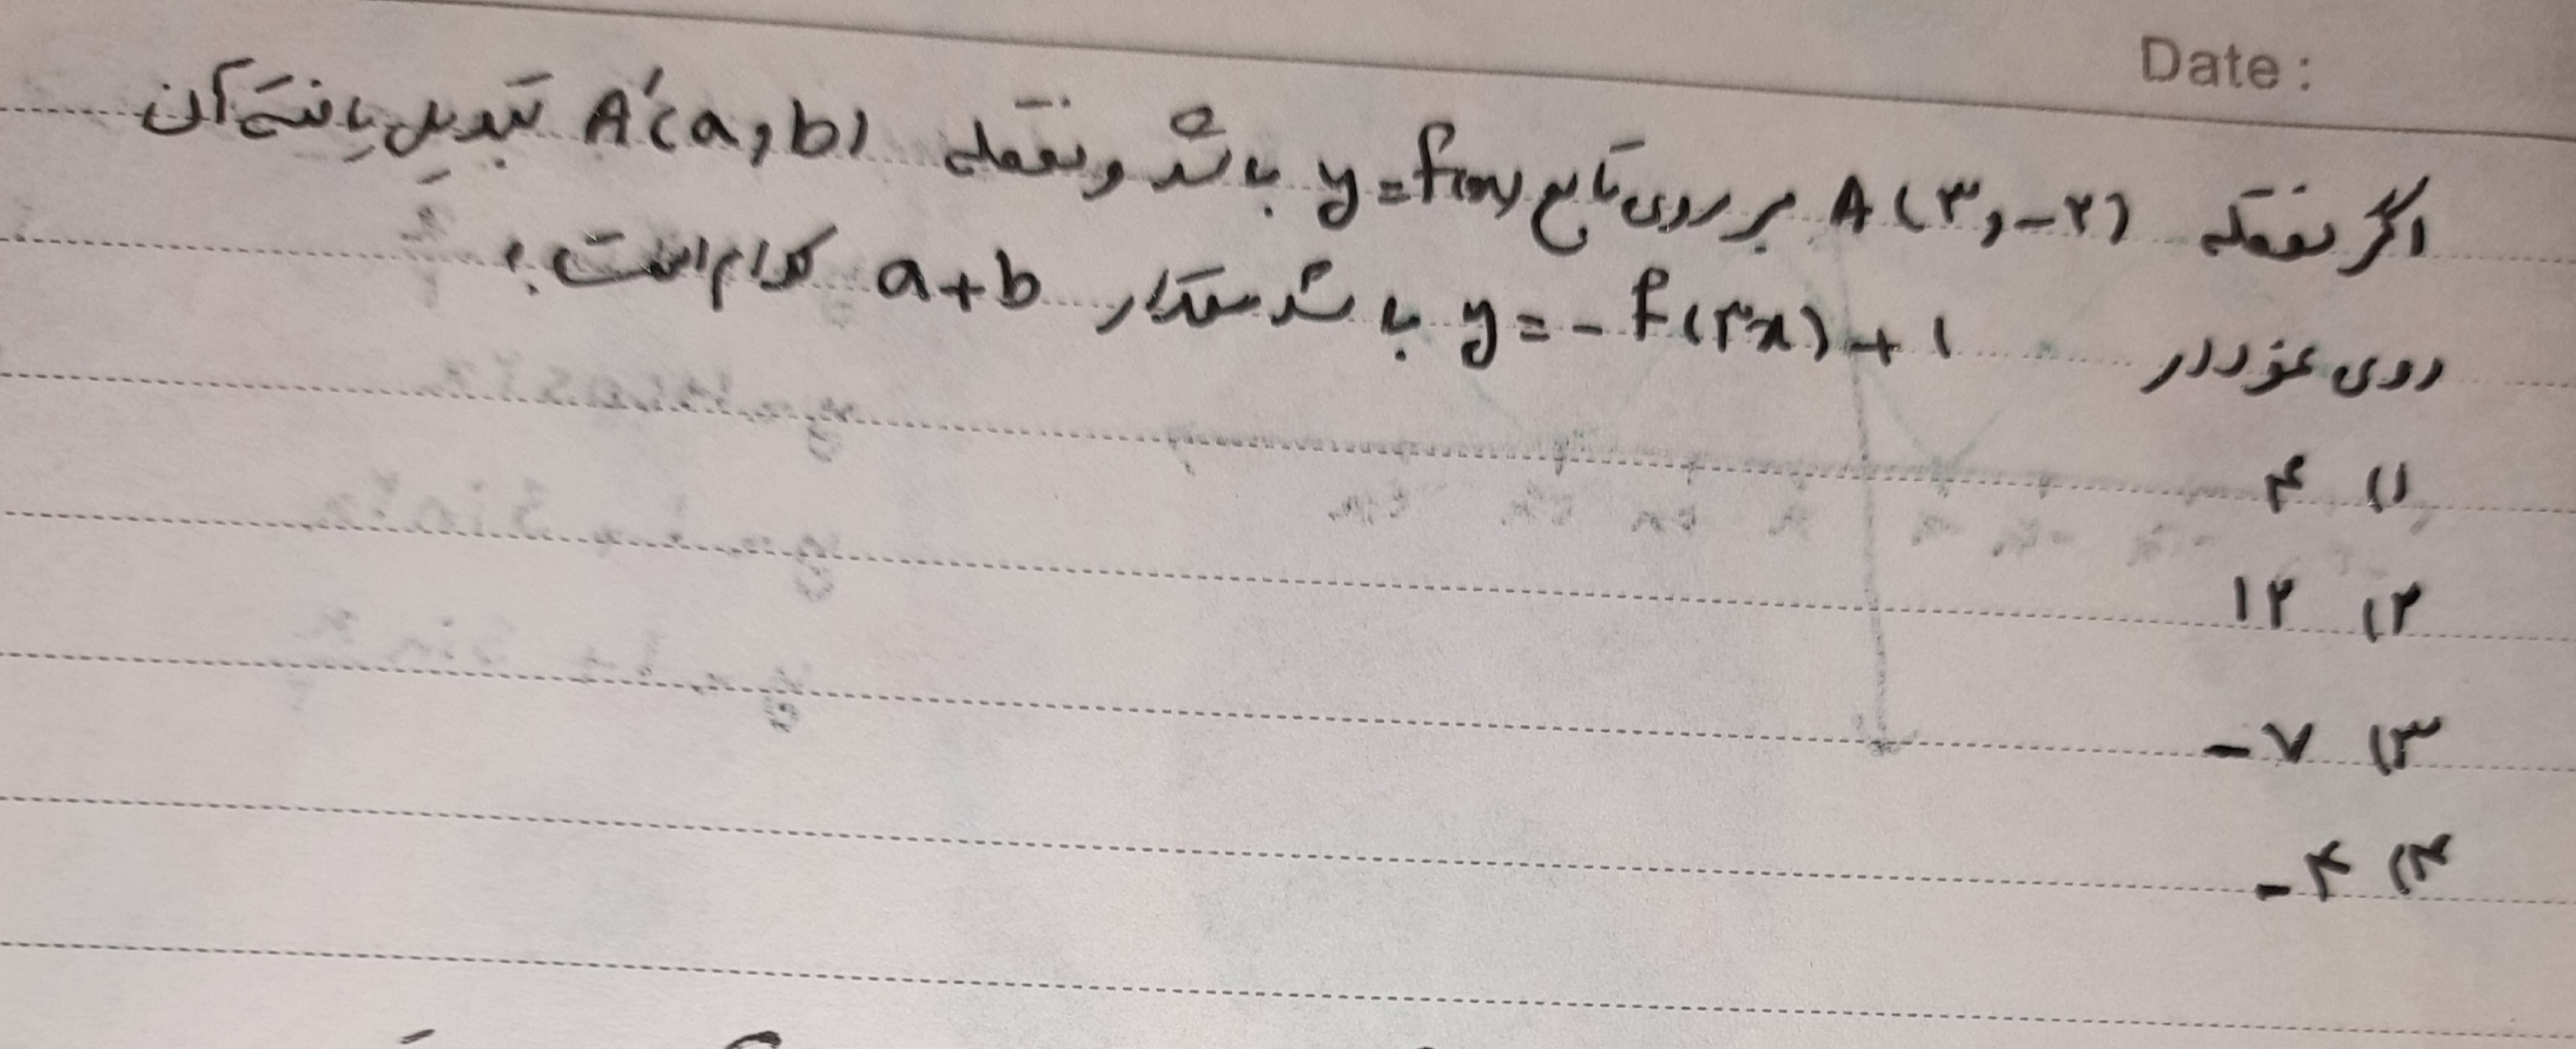 Date:
اگر نقطه A(۳,-۲) بر روی تابع y=f(x) باشد و نقطه A'(a,b) تبدیل یافته آن
روی نمودار y=-f(۳x)+۱ باشد مقدار a+b کدام است؟
۱) ۴
۲) ۱۲
۳) -۷
۴) -۴